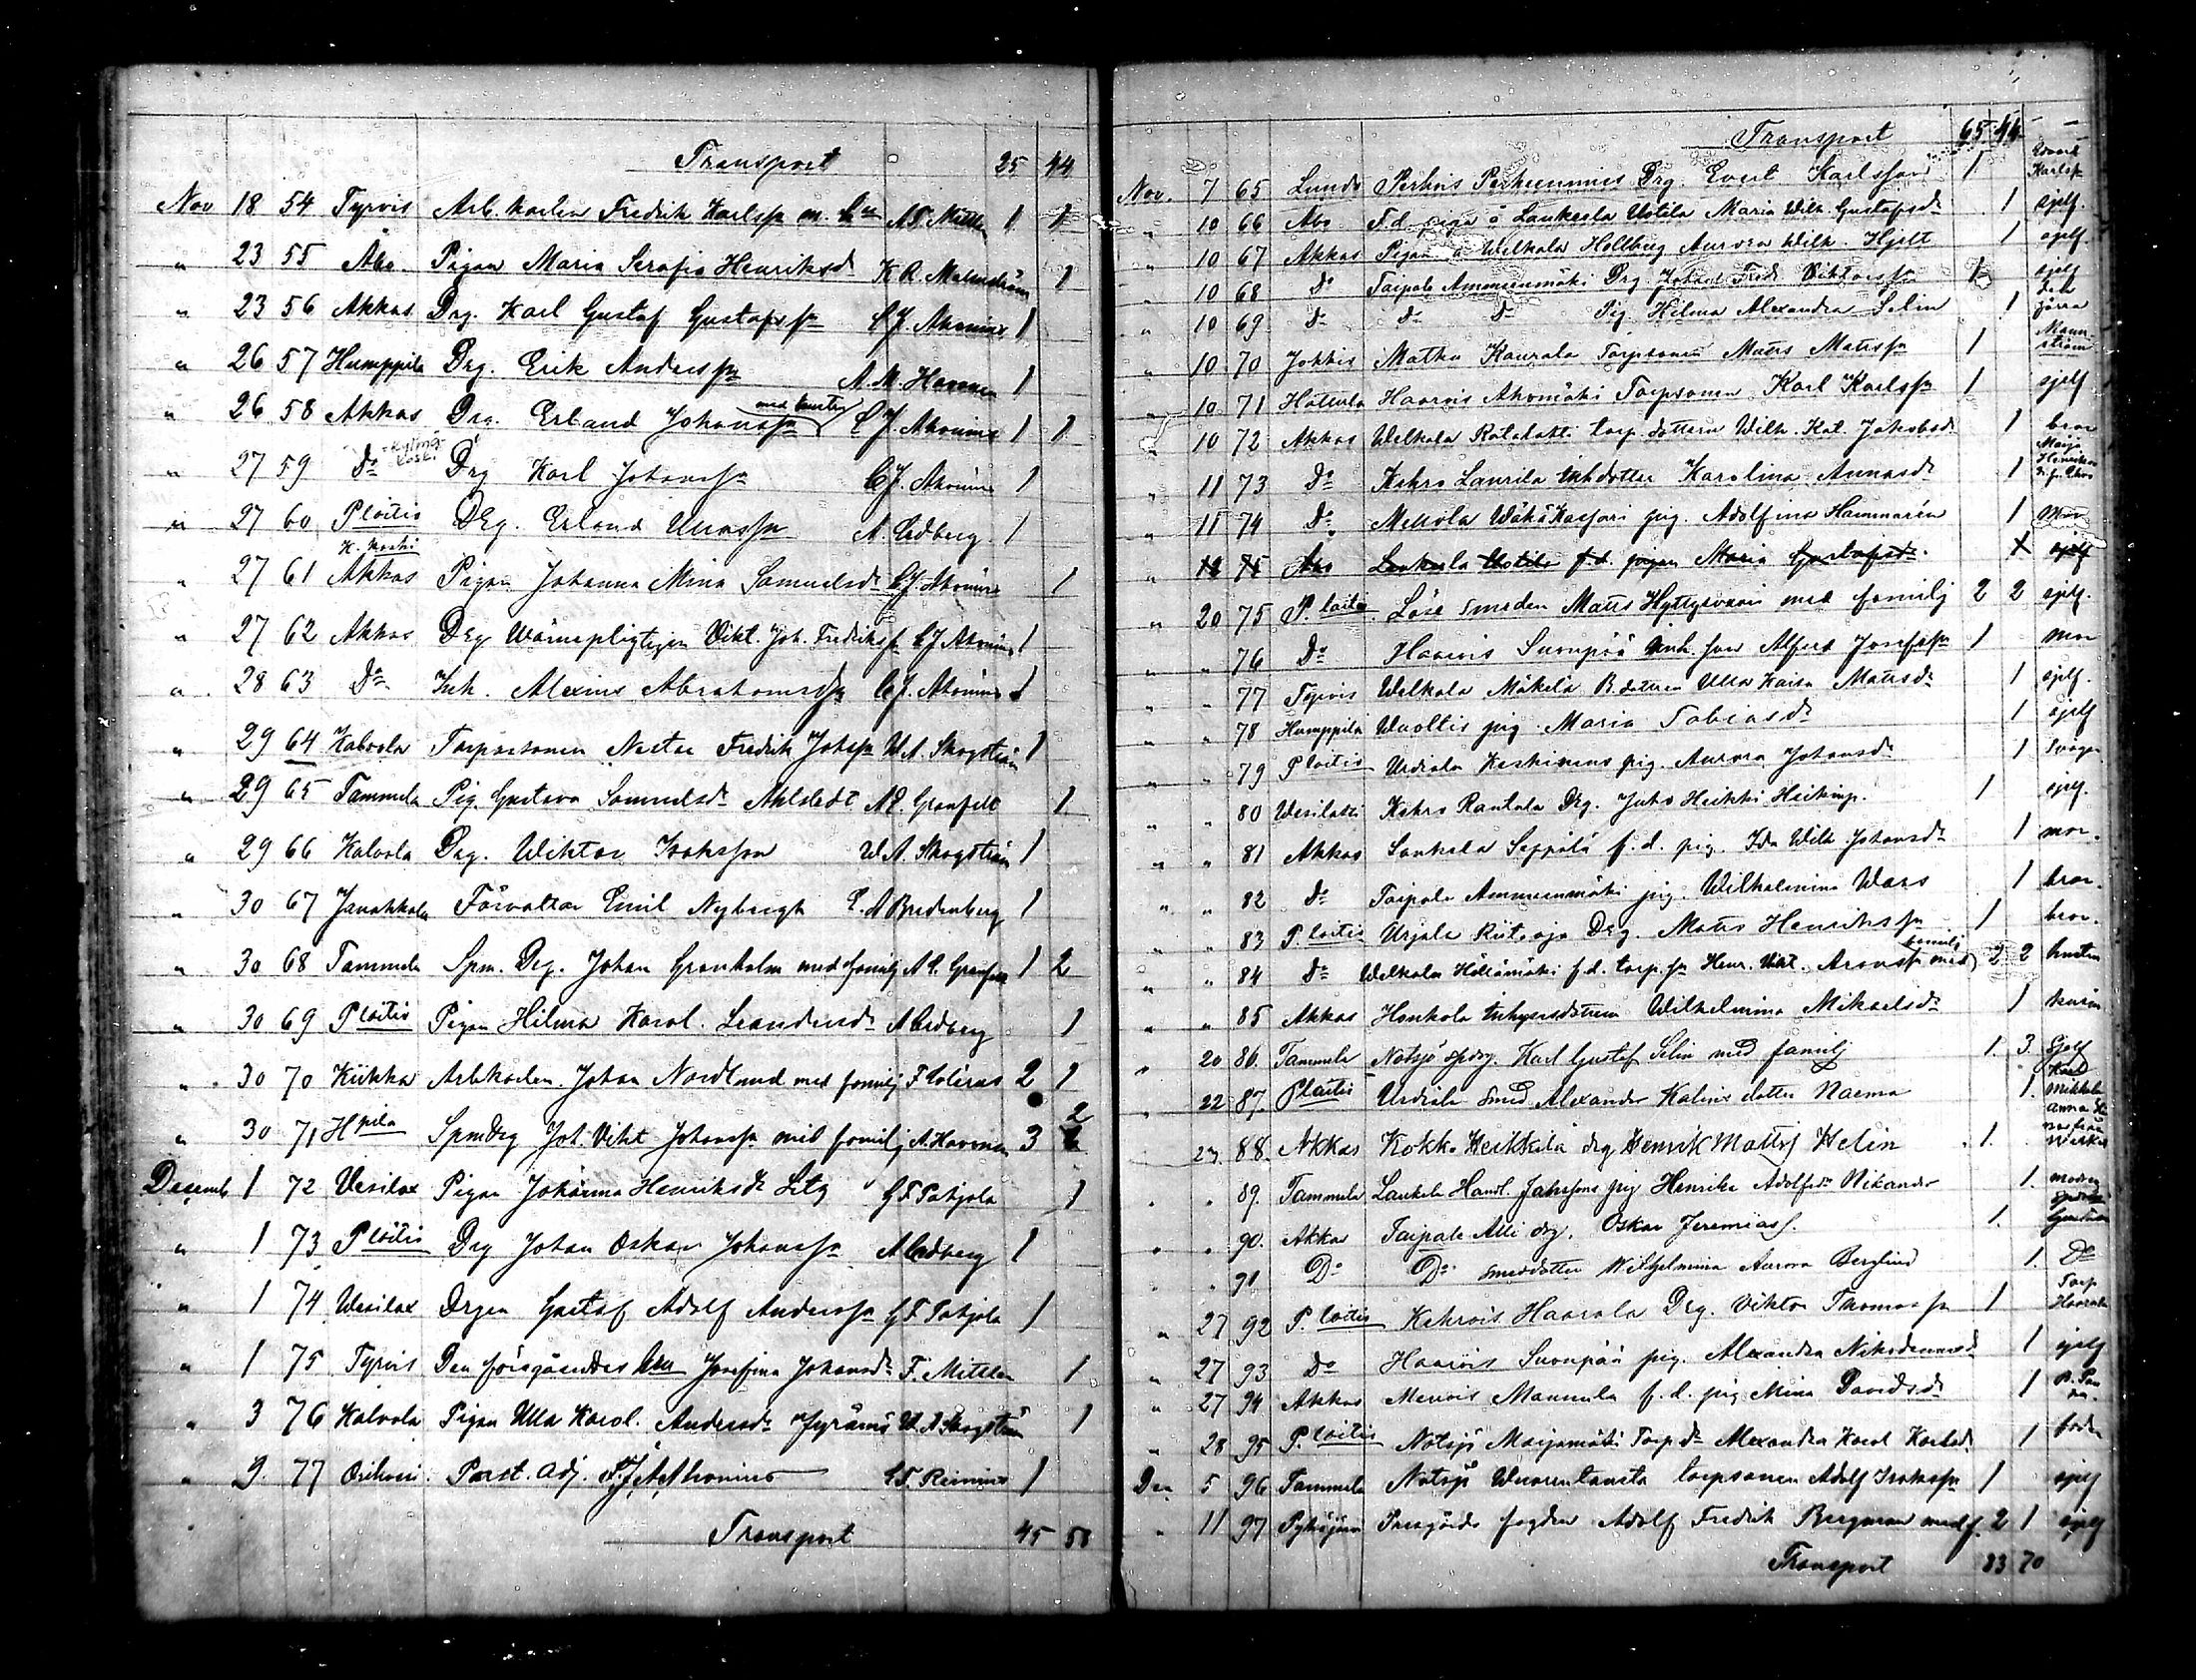 Transport 25 44
Nov 18 54 Tyrvis Arb. karlen Fredrik Karlssn m. hu 1 1
" 23 55 Åbo. Pigan Maria Serafia Henriksdr K R. Malmström 1
" 23 56 Akkas Drg. Karl Gustaf Gustafssn C J. Ahonius 1
" 26 57 Humppila Drg. Erik Anderssn A. M. Havonen 1
" 26 58 Akkas Drg. Erland Johanssn med hustru C J. Ahonius 1 1
" 27 59 Do Drg Karl Johanssn C J. Ahonius 1
" 27 60 P loitis Drg. Erland A. Cedberg 1
K. koski
" 27 61 Akkas Pigan Johanna Mina Samuelsdr C J. Ahonius 1
" 27 62 Akkas Drg Wärnepligtigen Vikt. Joh. Fredrikssn C J Ahonius 1
" 28 63 Do Inh. Alexius Abrahamssn C J. Ahonius 1
" 29 64 Kalvola Torparsonen Nestor Fredrik Johssn W A. Skogström 1
" 29 65 Tammela Pig. Gustava Samuelsdr Ahlstedt A E. Granfelt 1
" 29 66 Kalvola Drg. Wiktor Isaksson W A. Skogström 1
" 30 67 Janakkala Förvaltar Emil Nybergh E. A Bredenberg 1
" 30 68 Tammela Spm. Drg. Johan Granholm med familj A E. Granfelt 1 2
" 30 69 P loitis Pigan Hilma Karol. Leandersdr A Cedberg 1
" 30 70 Kiikka Arbkarlen Johan Nordlund med familj F 2 1
" 30 71 H pila Spmdrg Joh. Vikt Johanssn med familj A. Havonen 3 2
Decemb 1 72 Vesilax Pigan Johanna Henriksdr G F Pohjola 1
" 1 73 P loitis Drg Johan Oskar Johanssn A Cedberg 1
" 1 74 Wesilax Drgen Gustaf Adolf Anderssn G F Pohjola 1
" 1 75 Tyrvis Den föregåendes hu Josefina Johansdr F. 1
" 3 76 Kalvola Pigan Ulla Karol. Andersdr W A Skogström 1
" 9 77 Orihvesi Past. Adj. 1
Transport 45 58
Transport 65 44
Nov. 7 65 Lundo Perheenmies Drg. Evert Karlsson 1 Karlssn
" 10 66 Abo F.d. piga å Laukeela Uotila Maria Wilh. Gustafsdr 1 sjelf.
" 10 67 Akkas Pigan å Welkala Hellberg Aurora Wilh. Hjelt 1 sjelf.
" 10 68 Do Taipale Ammunmäki Drg. Johan Fredr. Viktorssn 1 sjelf
" 10 69 do do Do Pig Hilma Alexandra Selin 1
" 10 70 Jokkis Matku Kaurala Torpsonen Matts Mattssn 1 Mannström
" 10 71 Hattula Haarois Ahomäki Torpsonen Karl Karlssn 1 sjelf
" 10 72 Akkas Welkala torp. dottern Wilh. Kar. Jakobsdr 1 bror
" 11 73 Do Kehro Laurila inh dotter Karolina Annasdr 1
" 11 74 Do Mellola pig. Adolfina Hammarén 1
" 12 75 Abo Laukeela Uotila f.d. pigan Maria Gustafsdr X sjelf
" 20 75 P. loitis Löse smeden Matts med familj 2 2 sjelf.
" " 76 Do Haarois Suonpää inh. son Alfred Josefssn 1 mor
" " 77 Tyrvis Welkala Mäkelä B. dottern Ulla Kaisa Mattsdr 1 sjelf.
" " 78 Humppila Wuoltis pig. Maria Tobiasdr 1 sjelf
" " 79 P loitis Urdiala Keskinens pig. Aurora Johansdr 1 Svåger
" " 80 Wesilahti Kehro Rantala Drg. Juho Heikki Heikinp. 1 sjelf.
" " 81 Akkas Seppälä f.d. pig. Ida Wilh. Johansdr 1 mor.
" " 82 Do Taipale Ammunmäki pig. Wilhelmina Wass 1 bror.
" " 83 P. loitis Urjala Drg. Matts Henrikssn 1 bror.
" " 84 Do Welkala f.d. torp.sn Henr. Vikt. Aronssn med familj 2 2 hustrun
" " 85 Akkas Honkola inhysesdottern Wilhelmina Mikaelsdr 1 kusin
" 20 86. Tammela Notsjö Spdrg. Karl Gustaf Selin med familj 1. 3. Sjelf
" 22 87. Ploitis Urdiala Smed Alexander Kalins dotter Naema 1.
23. 88. Akkas Kokko Heikkilä drg Henrik Mattss Helin 1.
" " 89. Tammela Laukela Handl. Jahnssons pig Henrika Adolfsdr Nikander 1.
" " 90. Akkas Taipale Alli drg. Oskar Jeremiass. 1.
" 91 Do Do smeddotter Wilhelmina Aurora Berglund 1. Do
" 27 92 P. loitis Kehrois Haarala Drg. Viktor Thomassn 1 Torp
" 27 93 Do Haarois Suonpää pig. Alexandra Nikodemusd 1 sjelf
" 27 94 Akkas Menois Mannula f.d. pig Mina Davidsdr 1
" 28 95 P. loitis Notsjö Maijamäki Torp. dr Alexandra Karol Karlsd. 1
Dec 5 96 Tammela Notsjö Wuorentausta torpsonen Adolf Isakssn 1 sjelf
" 11 97 Pyhäjärvi Prestgårds fogden Adolf Fredrik Bergman med f. 2 1 sjelf
Transport 83 70